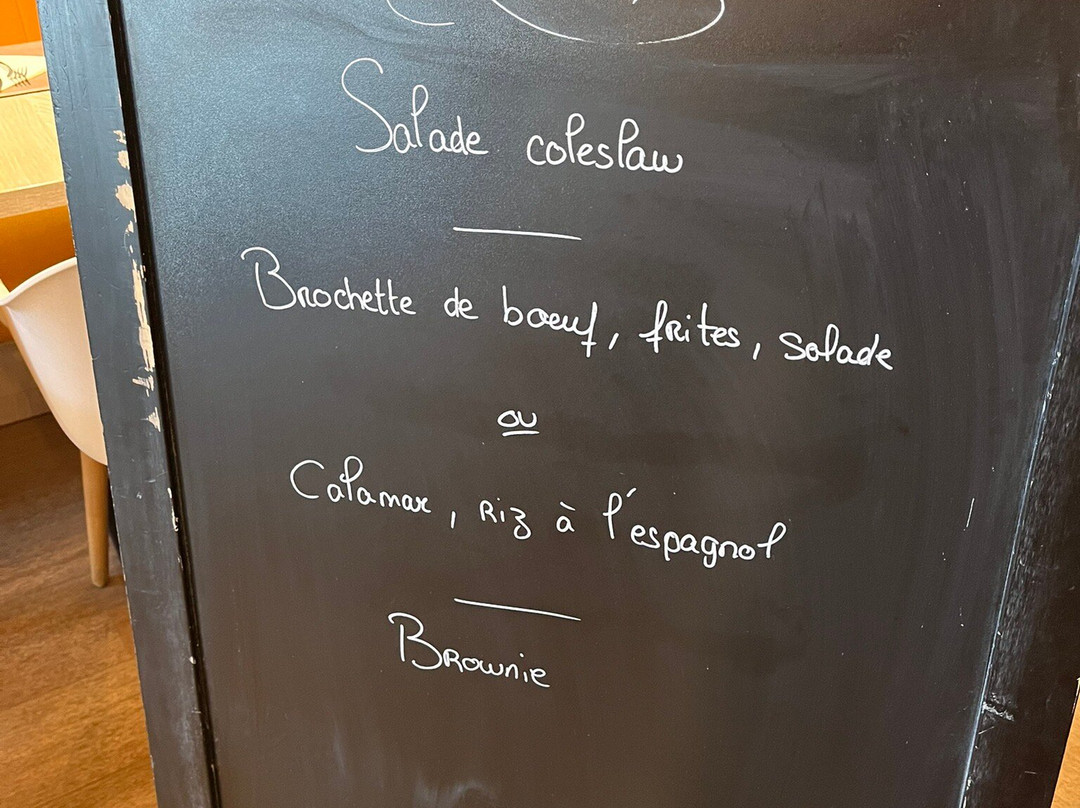 Salade coleslaw
Brochette de bœuf, frites, salade
ou
Calamar, riz à l'espagnol
Brownie